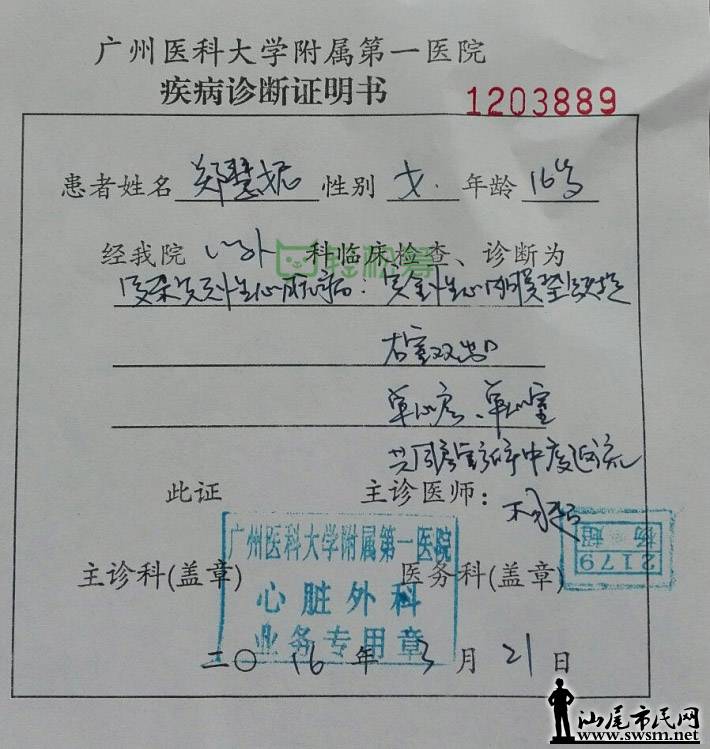 广州医科大学附属第一医院
疾病诊断证明书
1203889
患者姓名 郑慧妮 性别 女. 年龄 16岁
经我院 心外 科临床检查、诊断为
轻松筹
复杂先天性心脏病:完全性心内膜垫缺损
右室双出口
单心房、单心室
共同房室瓣中度返流
此证 主诊医师:杨超
主诊科(盖章) 医务科(盖章)
广州医科大学附属第一医院
心脏外科
业务专用章
杨超
2179
二〇16年3月21日
汕尾市民网
www.swsm.net